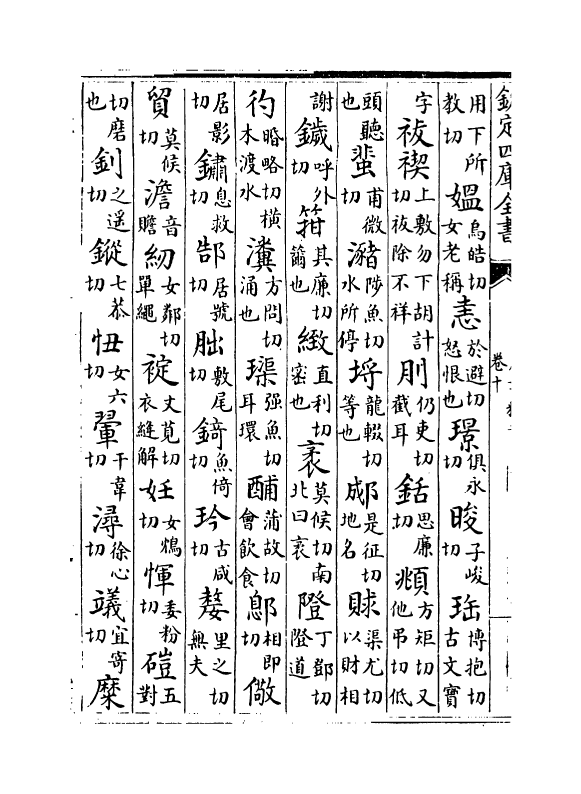 欽定四庫全書
卷十
用下所教切媼烏皓切女老稱恚於避切怒恨也璟俱永切晙子峻切珤博抱切古文寶
字祓禊上敷勿下胡計切祓除不祥刵仍吏切截耳銛思廉切頫方矩切又他弔切低
頭聽也蜚甫微切瀦陟魚切水所停埒龍輟切等也郕是征切地名賕渠尤切以財相
謝鐬呼外切箝其廉切籋也緻直利切密也袤莫候切南北曰袤隥丁鄧切隥道
彴略切橫木渡水瀵方問切涌也璖强魚切耳環酺蒲故切會飲食鄎相即切儆
居影切鏽息救切郜居號切朏敷尾切錡魚倚切玪古咸切嫠里之切無夫
貿莫候切澹音贍紉女鄰切單繩䘺丈莧切衣縫解妊女鴆切惲委粉切磑五對
切磨也釗之遥切鏦七恭切忸女六切翬于韋切潯徐心切宜寄切糜